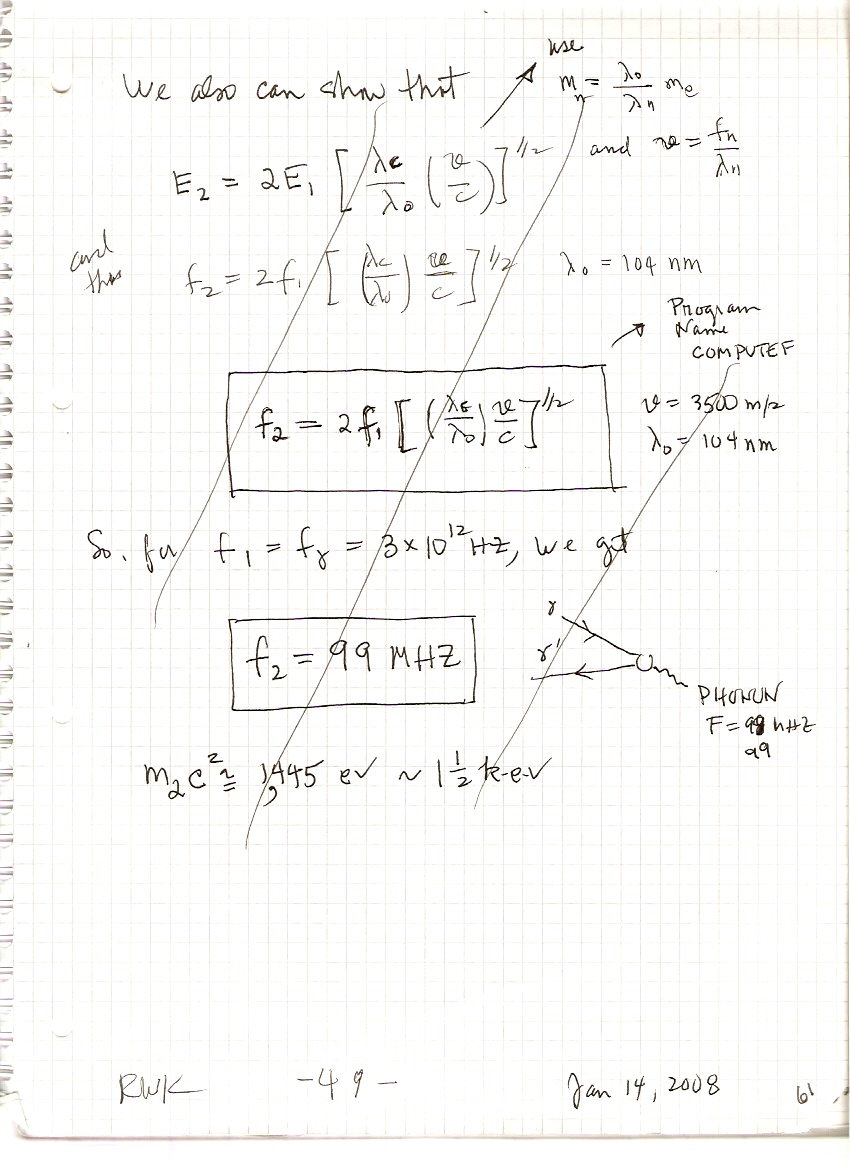 use
We also can show that
m_n = λ_0/λ_n m_e
E_2 = 2E_1 [ λ_c/λ_0 (v/c) ]^1/2 and v = f_n/λ_n
and
thus
f_2 = 2f_1 [ (λ_c/λ_0) v/c ]^1/2 λ_0 = 104 nm
Program
Name
COMPUTEF
f_2 = 2f_1 [ (λ_c/λ_0) v/c ]^1/2
v = 3500 m/s
λ_0 = 104 nm
So, for f_1 = f_γ = 3×10^12 HZ, we get
f_2 = 99 MHZ
γ
γ'
PHONON
F = 98 MHZ
99
m_2c^2 ≅ 1,445 ev ~ 1 1/2 k-ev
RWK -49- Jan 14, 2008 61